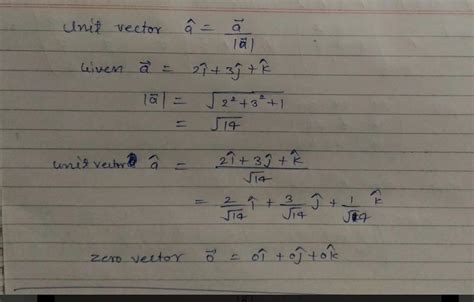 Unit vector â = a⃗ / |a⃗|
Given a⃗ = 2î + 3ĵ + k̂
|a⃗| = √(2² + 3² + 1)
= √14
unit vector â = (2î + 3ĵ + k̂) / √14
= 2/√14 î + 3/√14 ĵ + 1/√14 k̂
zero vector o⃗ = 0î + 0ĵ + 0k̂